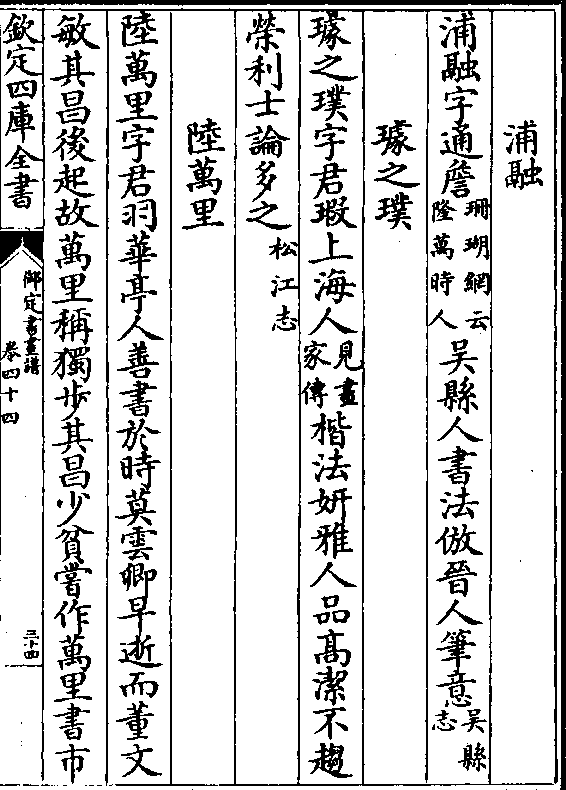 浦融
浦融字通詹珊瑚網云隆萬時人吳縣人書法倣晉人筆意吳縣志
璩之璞
璩之璞字君瑕上海人見畫家傳楷法妍雅人品高潔不趨
榮利士論多之松江志
陸萬里
陸萬里字君羽華亭人善書於時莫雲卿早逝而董文
敏其昌後起故萬里稱獨步其昌少貧嘗作萬里書市
欽定四庫全書
御定書畫譜
卷四十四
三十四